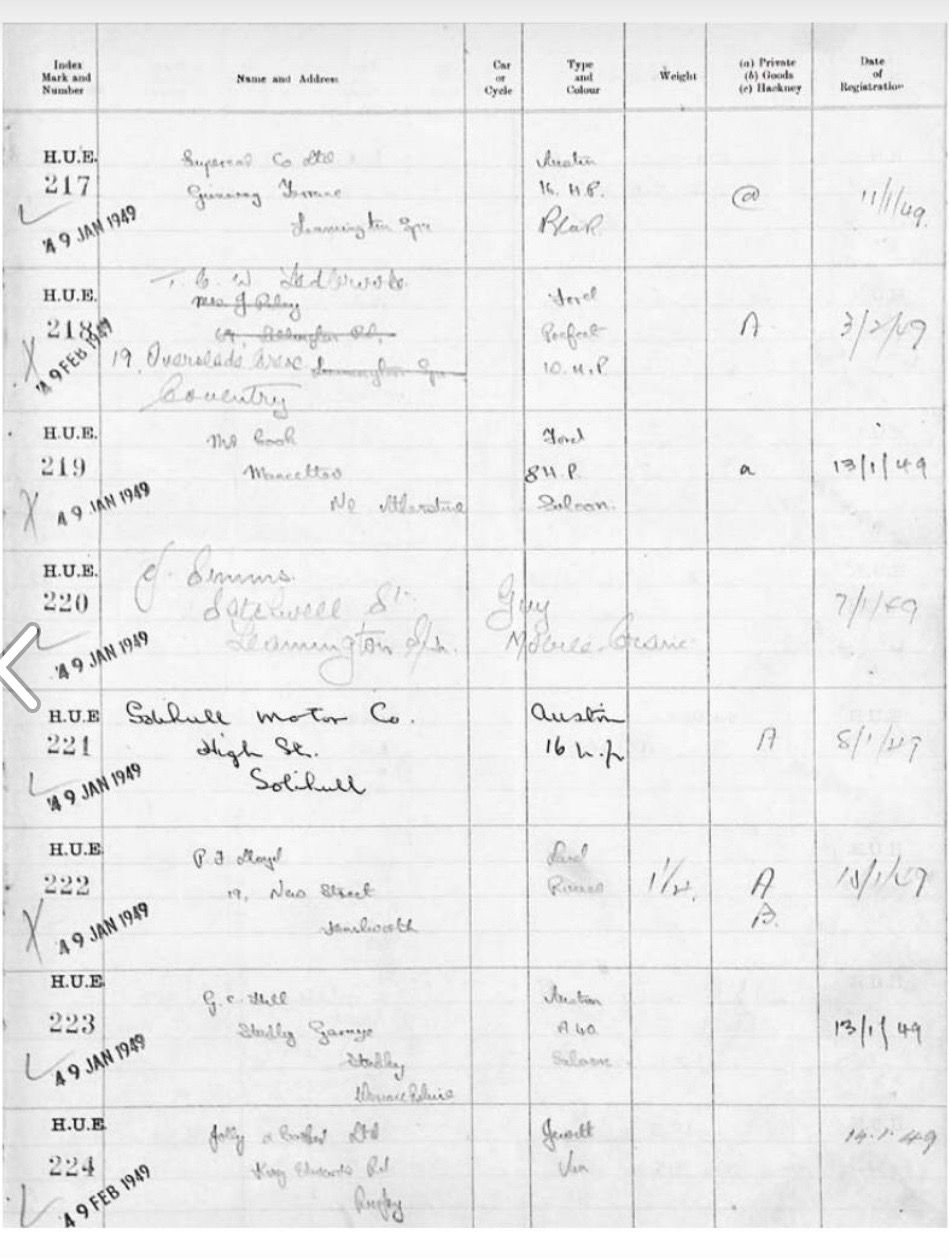 Index
Mark and
Number
Name and Address
Car
or
Cycle
Type
and
Colour
Weight
(a) Private
(b) Goods
(c) Hackney
Date
of
Registration
H.U.E.
217
49 JAN 1949
Co Ltd
Terrace
Leamington Spa
Austin
16. H.P.
Black
@
11/1/49.
H.U.E.
218
49 FEB 1949
T. C. W.
Mrs J
19
Coventry
Leamington Spa
Ford
Prefect
10. H.P
A
3/2/49
H.U.E.
219
X
49 JAN 1949
Mr Cook
Mancetter
Nr Atherstone
Ford
8 H.P.
Saloon.
a
13/1/49
H.U.E.
220
49 JAN 1949
J. Simms.
St.
Leamington
Guy
Mobile Crane
7/1/49
H.U.E
221
49 JAN 1949
Solihull Motor Co.
High St.
Solihull
Austin
16 h.p
A
8/1/49
H.U.E
222
X
49 JAN 1949
P J Lloyd
19, New Street
Kenilworth
Land
Rover
A
B.
H.U.E
223
49 JAN 1949
G. C. Hill
Studley Garage
Studley
Warwickshire
Austin
A 40
Saloon
13/1/49
H.U.E
224
49 FEB 1949
Jolly & Ltd
King Edwards Rd
Rugby
Jowett
Van
14.1.49